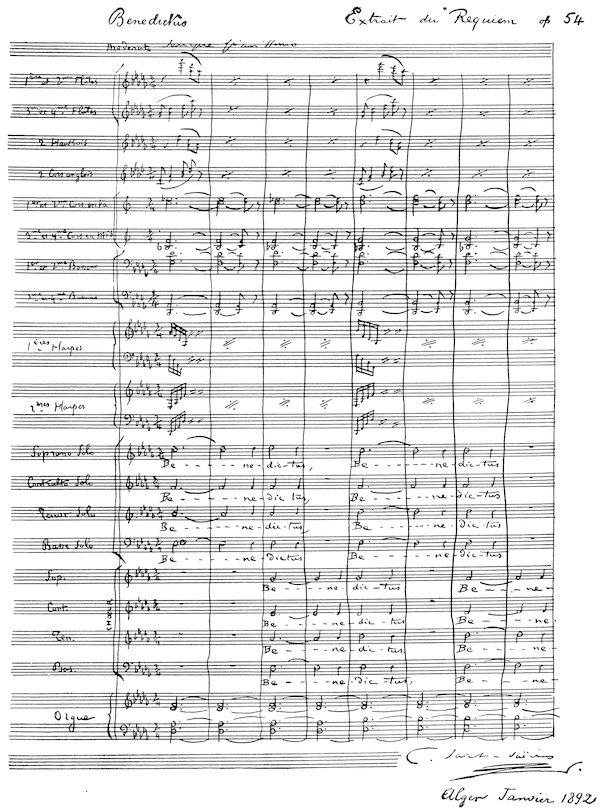 Benedictus Extrait du Requiem op 54
Moderato
1ères et 2mes Flûtes
3mes et 4mes Flûtes
2 Hautbois
2 Cors anglais
1er et 2me Cors en fa
3me et 4me Cors en Mi♭
1er et 2me Bassons
3me et 4me Bassons
1ères Harpes
2mes Harpes
Soprano Solo
Be - - - - - ne - dic - tus, Be - - - - - ne - dic - tus
Contralto Solo
Be - - - - - ne - dic - tus, Be - - - - - ne - dic - tus
Tenor Solo
Be - - - - - ne - dic - tus, Be - - - - - ne - dic - tus
Basse Solo
Be - - - - - ne - dictus Be - - - - - ne - dic - tus
Sop.
Be - - - - ne - dic - tus Be - - - - ne -
Cont.
Be - - - - ne - dic - tus Be - - - - ne -
Ten.
Be - - - - ne - dic - tus Be - - - - ne -
Bas.
Be - - - - ne - dic - tus, Be - - - - ne
Orgue
C. Saint-Saëns
Alger Janvier 1892